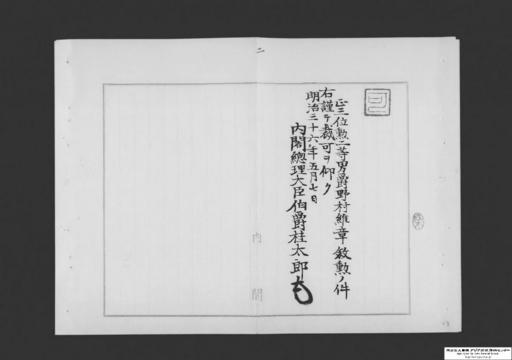 可
正三位勲二等男爵野村維章敘勲ノ件
右謹テ裁可ヲ仰ク
明治三十六年五月七日
内閣總理大臣伯爵桂太郎
内閣
二